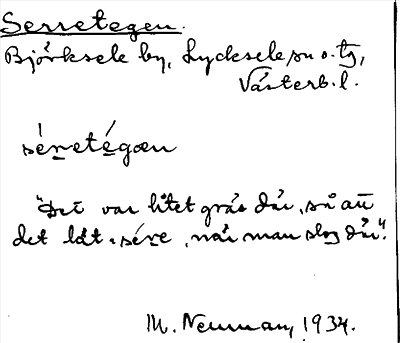 Serretegen.
Björksele by, Lycksele sn o. tg,
Västerb. l.
séretégœn
"Det var litet gräs där, så att
det lät "sére", när man slog där".
M. Neuman, 1934.